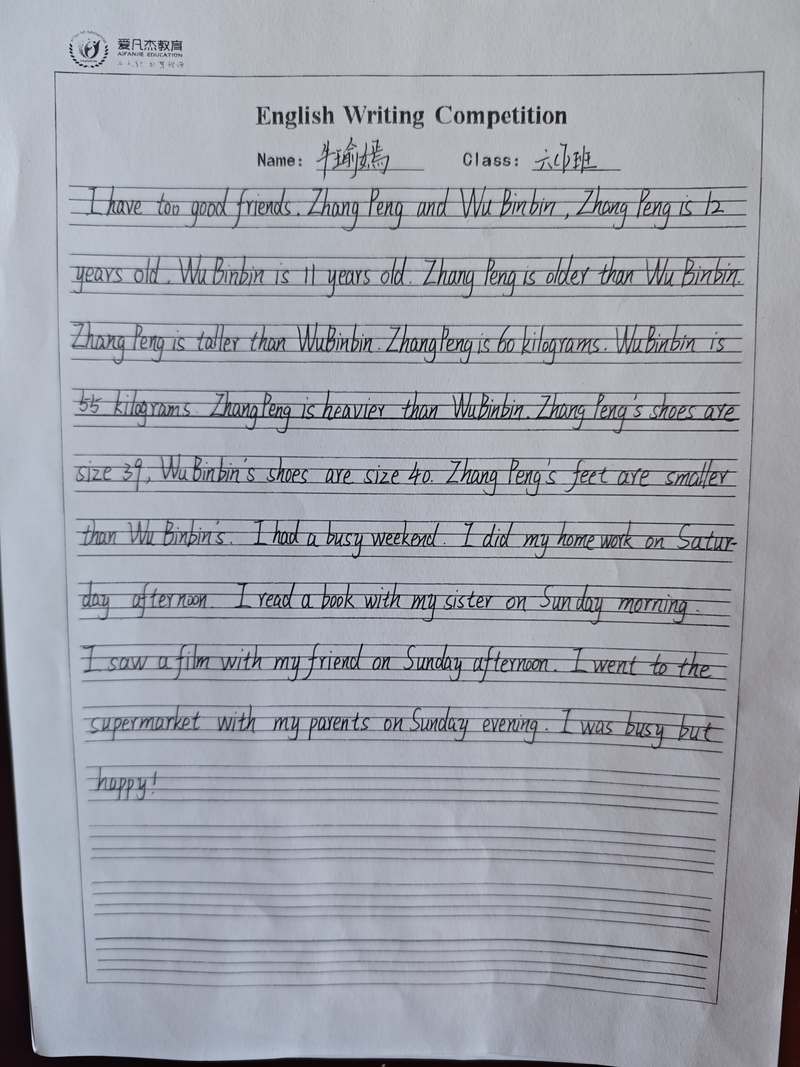 爱凡杰教育
AIFANJIE EDUCATION
English Writing Competition
Name: 牛瑜嫣 Class: 六(1)班
I have too good friends. Zhang Peng and Wu Binbin, Zhang Peng is 12
years old. Wu Binbin is 11 years old. Zhang Peng is older than Wu Binbin.
Zhang Peng is taller than WuBinbin. Zhang Peng is 60 kilograms. WuBinbin is
55 kilograms. Zhang Peng is heavier than WuBinbin. Zhang Peng's shoes are
size 39, WuBinbin's shoes are size 40. Zhang Peng's feet are smaller
than Wu Binbin's. I had a busy weekend. I did my home work on Satur-
day afternoon. I read a book with my sister on Sunday morning.
I saw a film with my friend on Sunday afternoon. I went to the
supermarket with my parents on Sunday evening. I was busy but
happy!